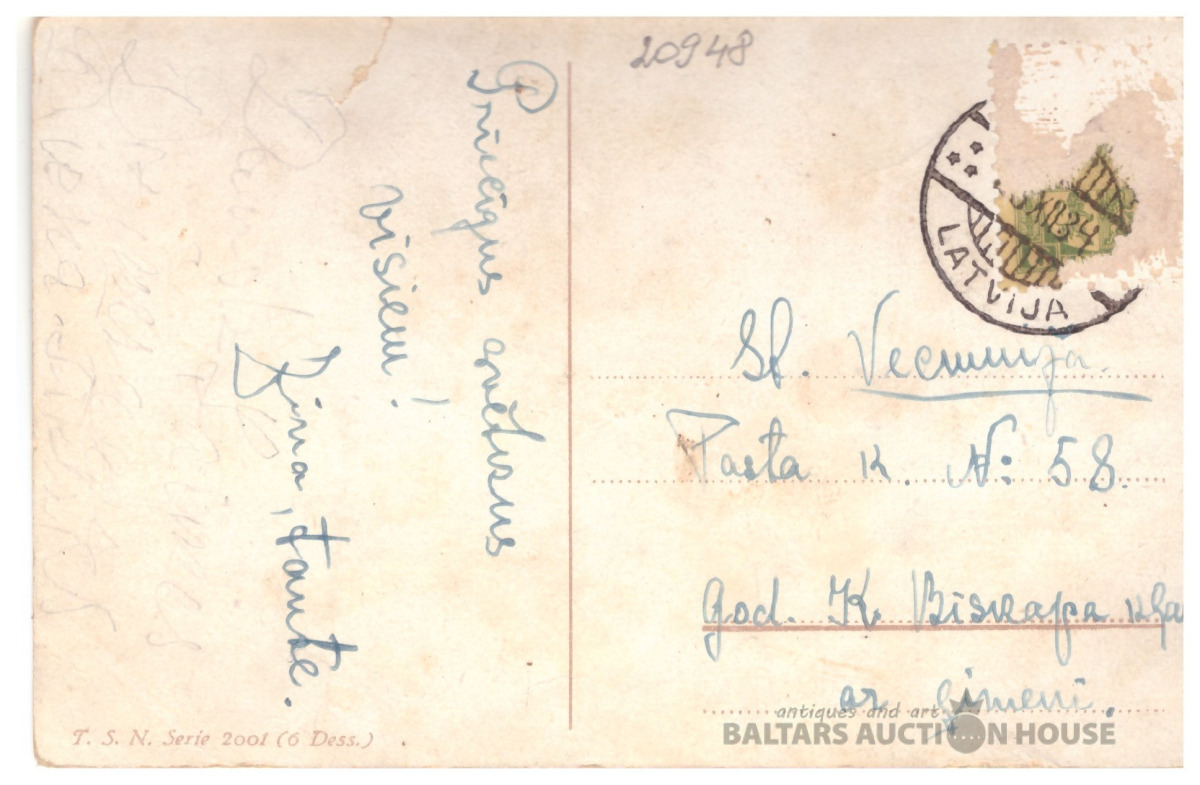 20948
Priecīgus svētkus
visiem!
Zina, tante.
T. S. N. Serie 2001 (6 Dess.)
XII.34
LATVIJA
St. Vecmuiža.
Pasta k. № 58.
God. K. Biskapa kga
ar ģimeni.
antiques and art
BALTARS AUCTION HOUSE